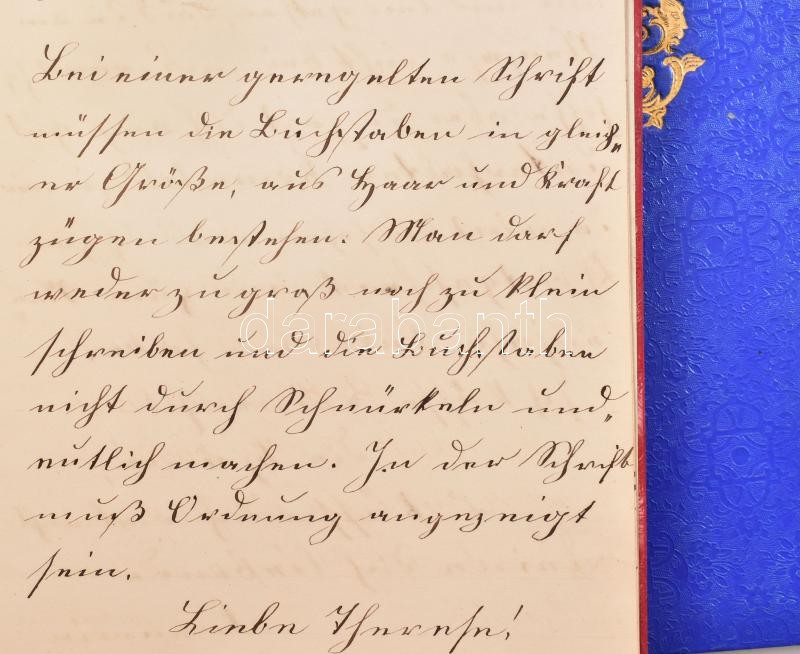 Bei einer geregelten Schrift
müssen die Buchstaben in gleich„
er Größe, aus Haar und Kraft
zügen bestehen. Man darf
weder zu groß noch zu klein
schreiben und die Buchstaben
nicht durch Schnürkeln und„
eutlich machen. In der Schrift
muß Ordnung angezeigt
sein.
Liebe Therese!
darabanth